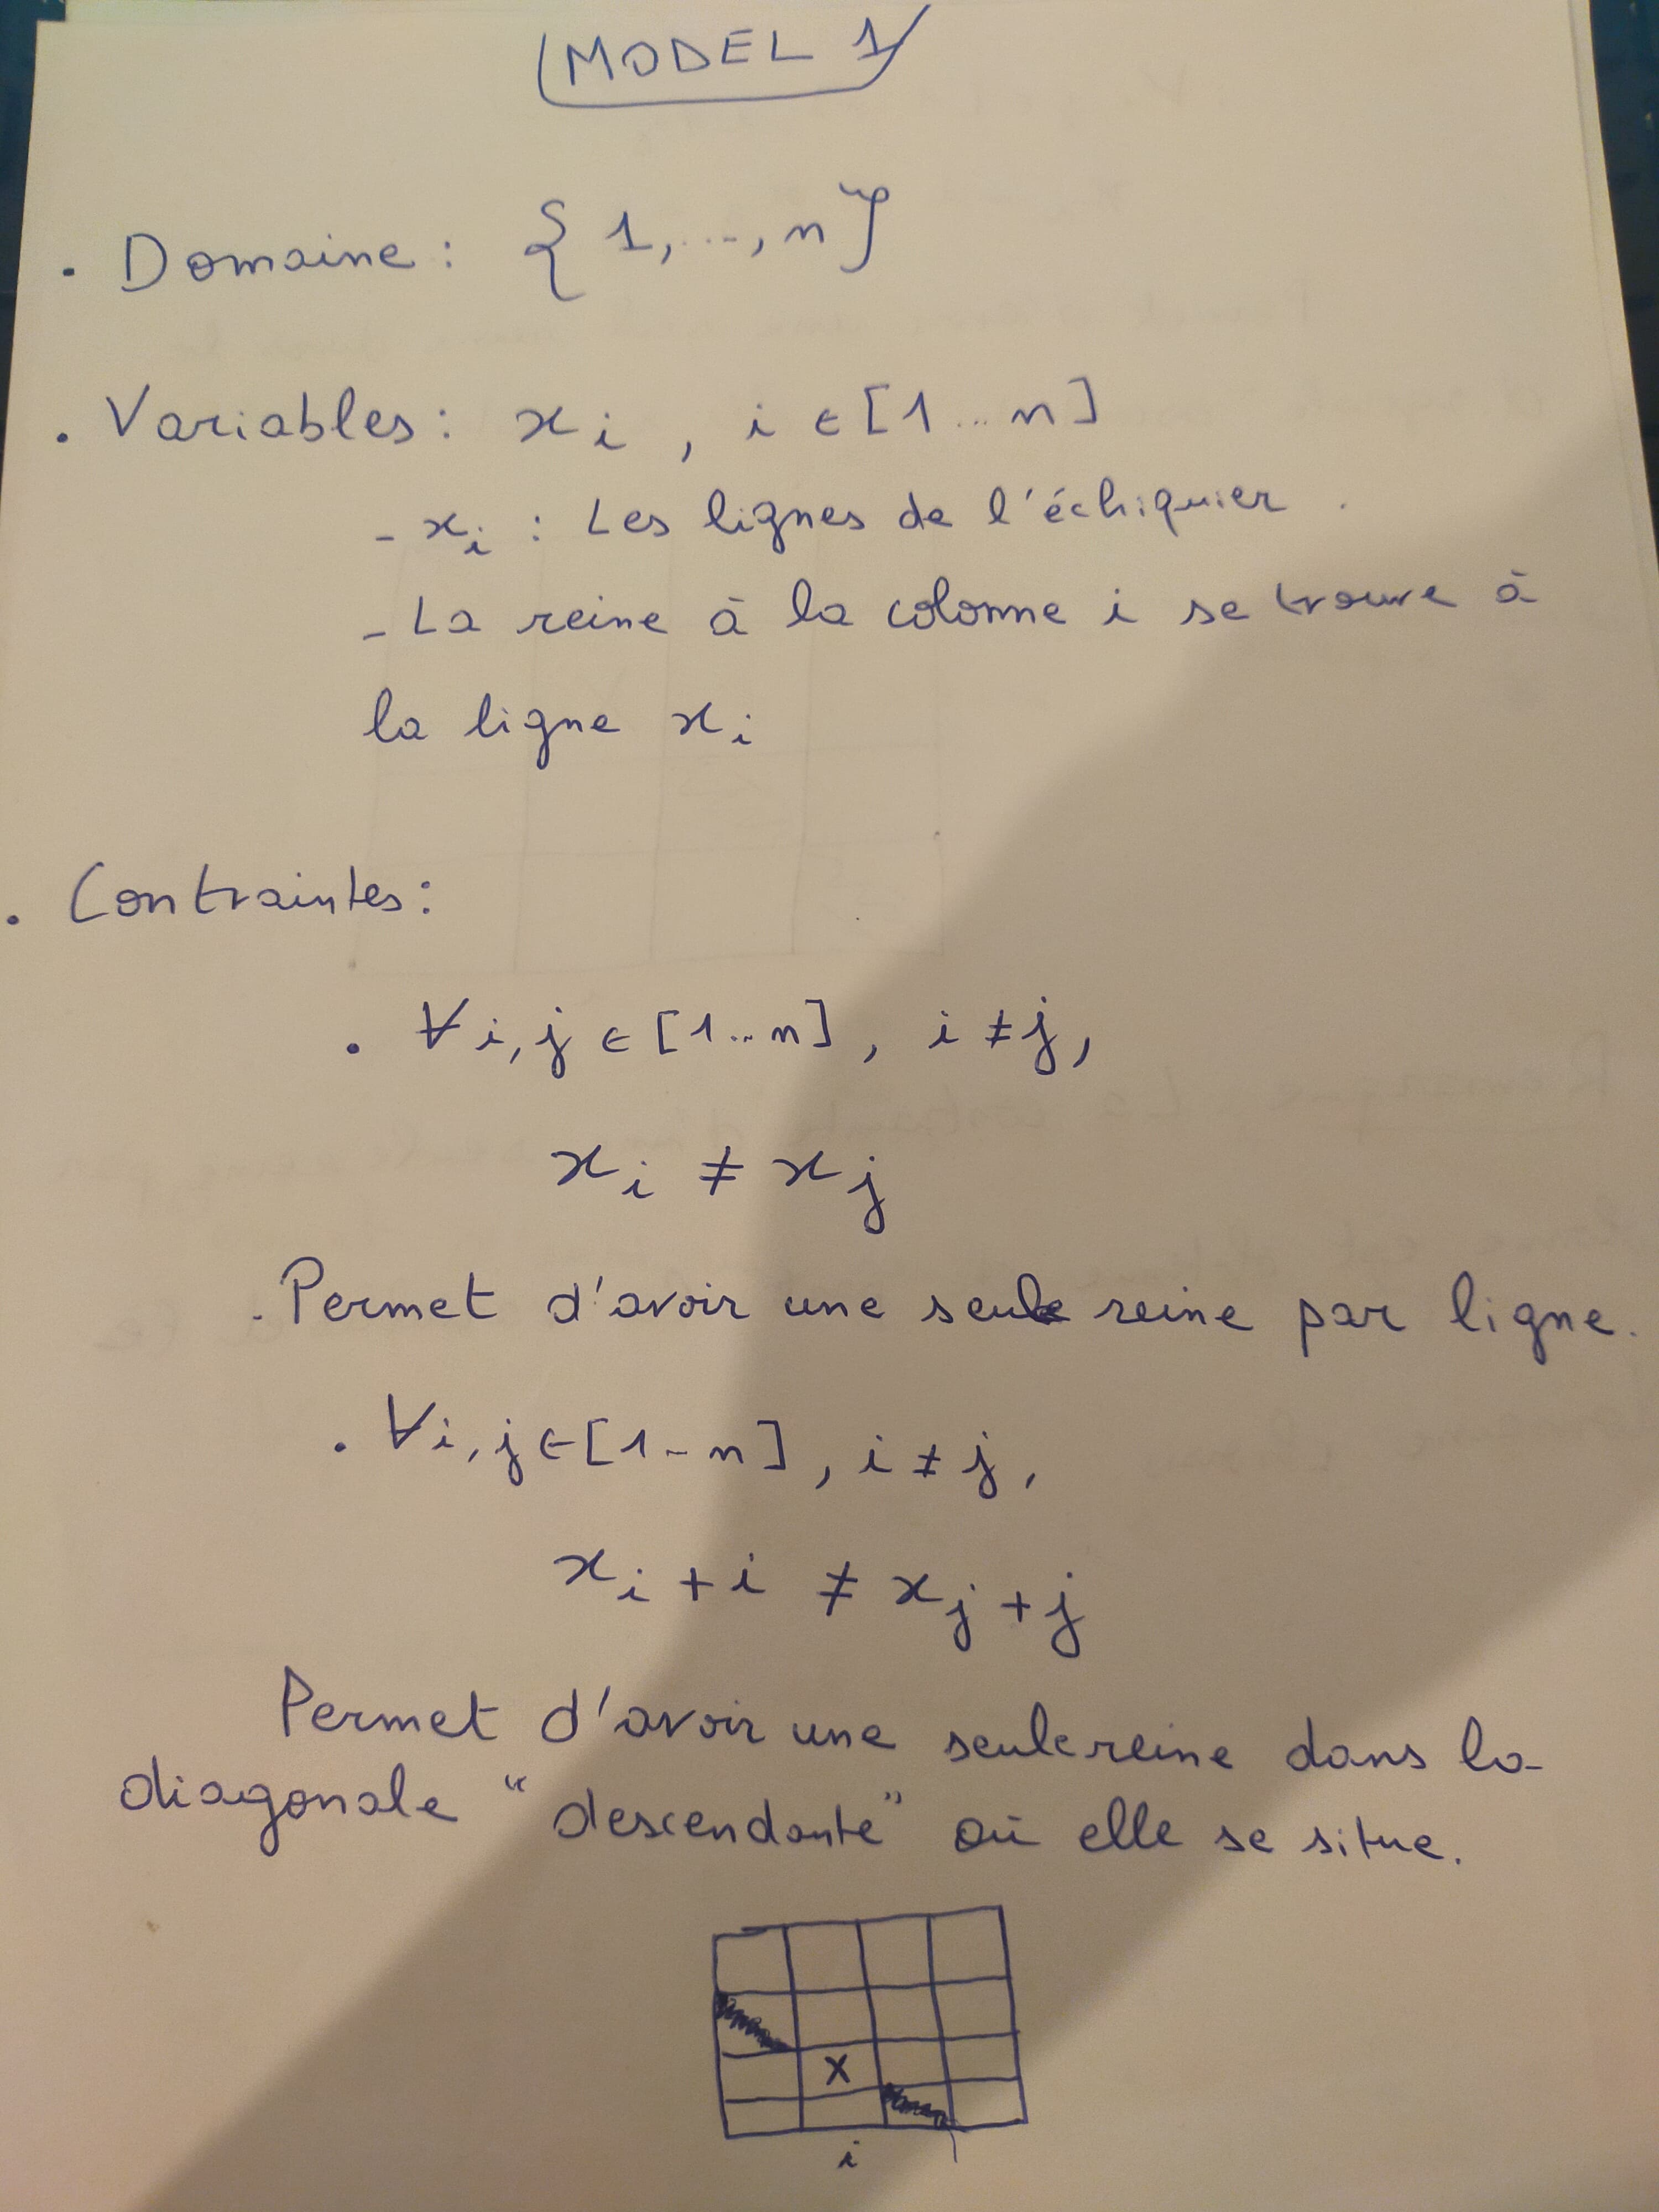 MODEL 1
. Domaine : { 1, ..., n }
. Variables : xi , i ∈ [1 .. n]
- xi : Les lignes de l'échiquier .
- La reine à la colonne i se trouve à
la ligne xi
. Contraintes :
. ∀i,j ∈ [1..n] , i ≠ j,
xi ≠ xj
. Permet d'avoir une seule reine par ligne.
. ∀i,j ∈ [1 - n] , i ≠ j,
xi + i ≠ xj + j
Permet d'avoir une seule reine dans la
diagonale “descendante” où elle se situe.
X
i